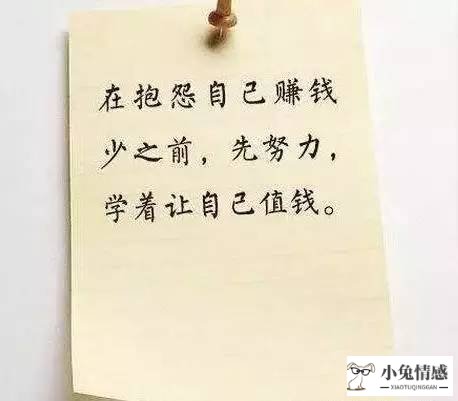 在抱怨自己赚钱
少之前，先努力，
学着让自己值钱。
小兔情感
XIAOTUQINGGAN